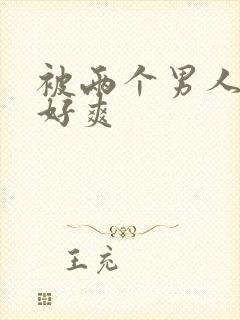 被两个男人
好爽
王充